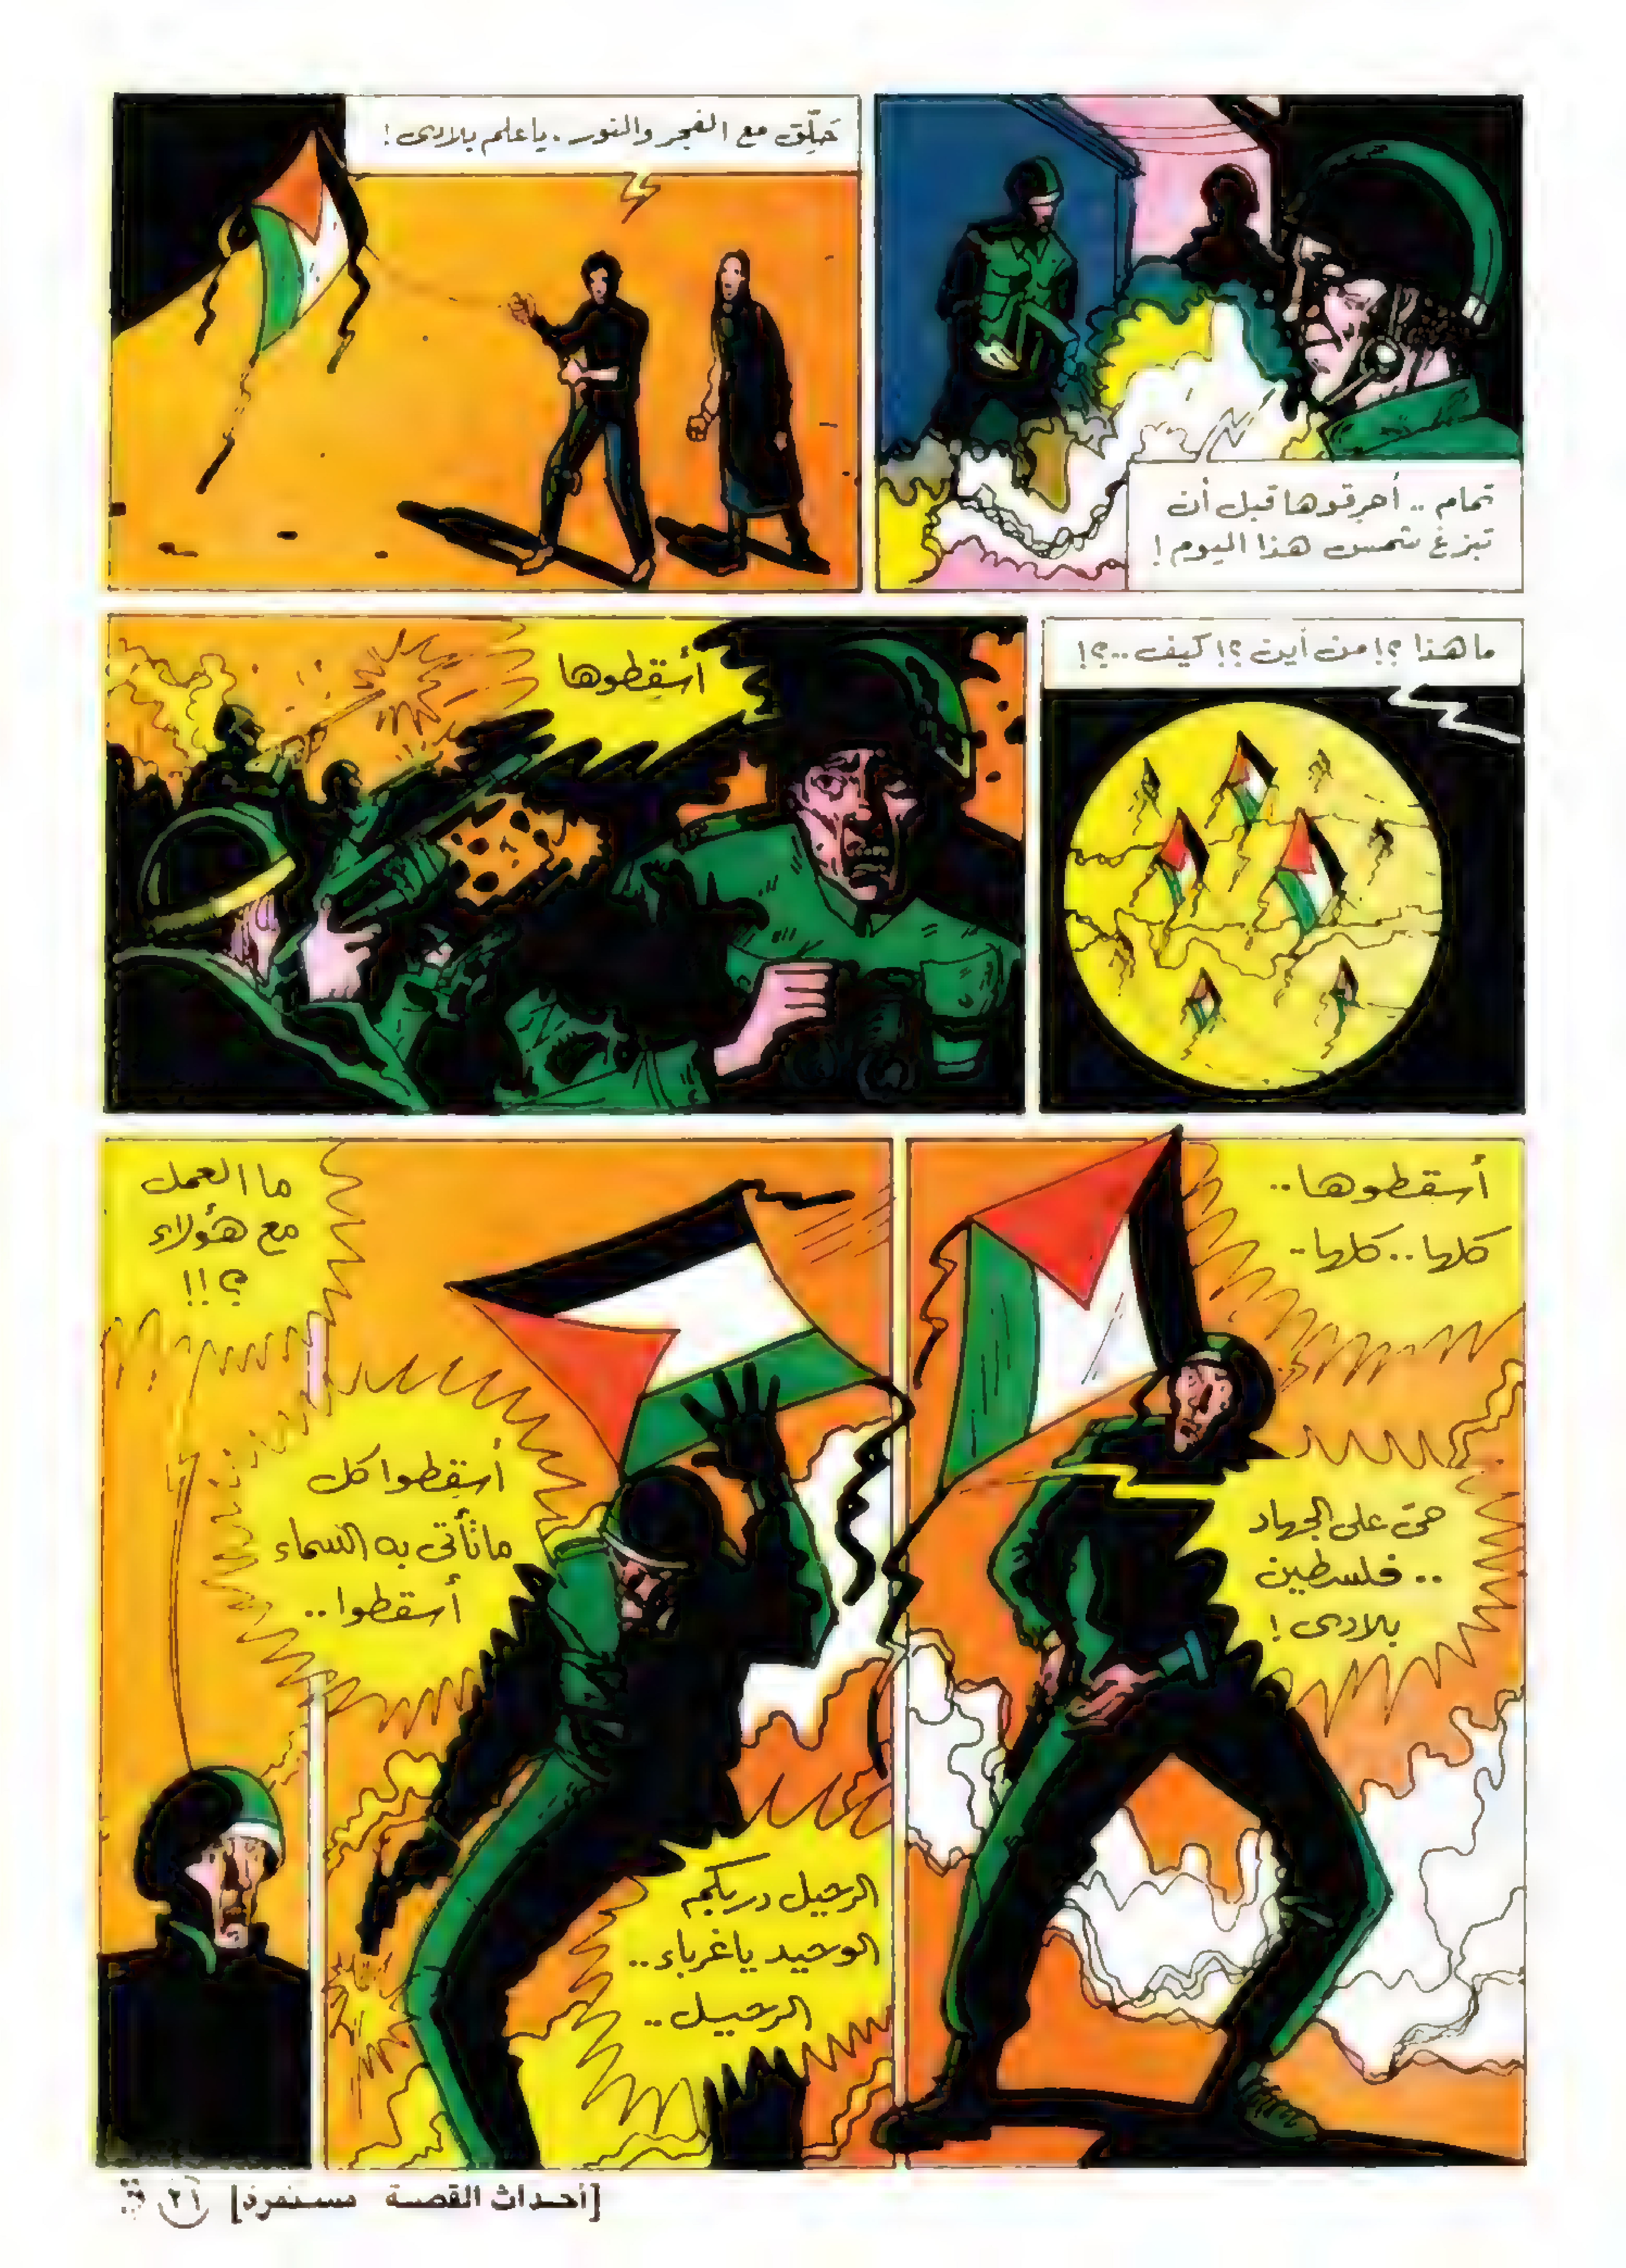 تمام .. أحرقوها قبل أن
تبزغ شمس هذا اليوم !
حَلِّق مع الفجر والنور . يا علم بلادى !
ما هذا ؟! من أين ؟! كيف ..؟!
أسقِطوها
أسقطوها ..
كلها .. كلها ..
حىّ على الجهاد
.. فلسطين
بلادى !
أسقِطوا كل
ما تأتى به السماء
أسقطوا ..
الرحيل دربكم
الوحيد يا غرباء ..
الرحيـل ..
ما العمل
مع هؤلاء
؟ !!
[أحداث القصة مستمرة]
٢١